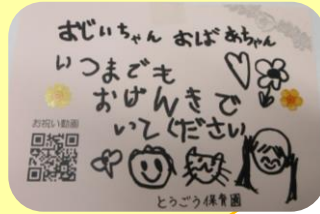 おじいちゃん おばあちゃん
いつまでも
おげんきで
いてください
お祝い動画
とうごう保育園